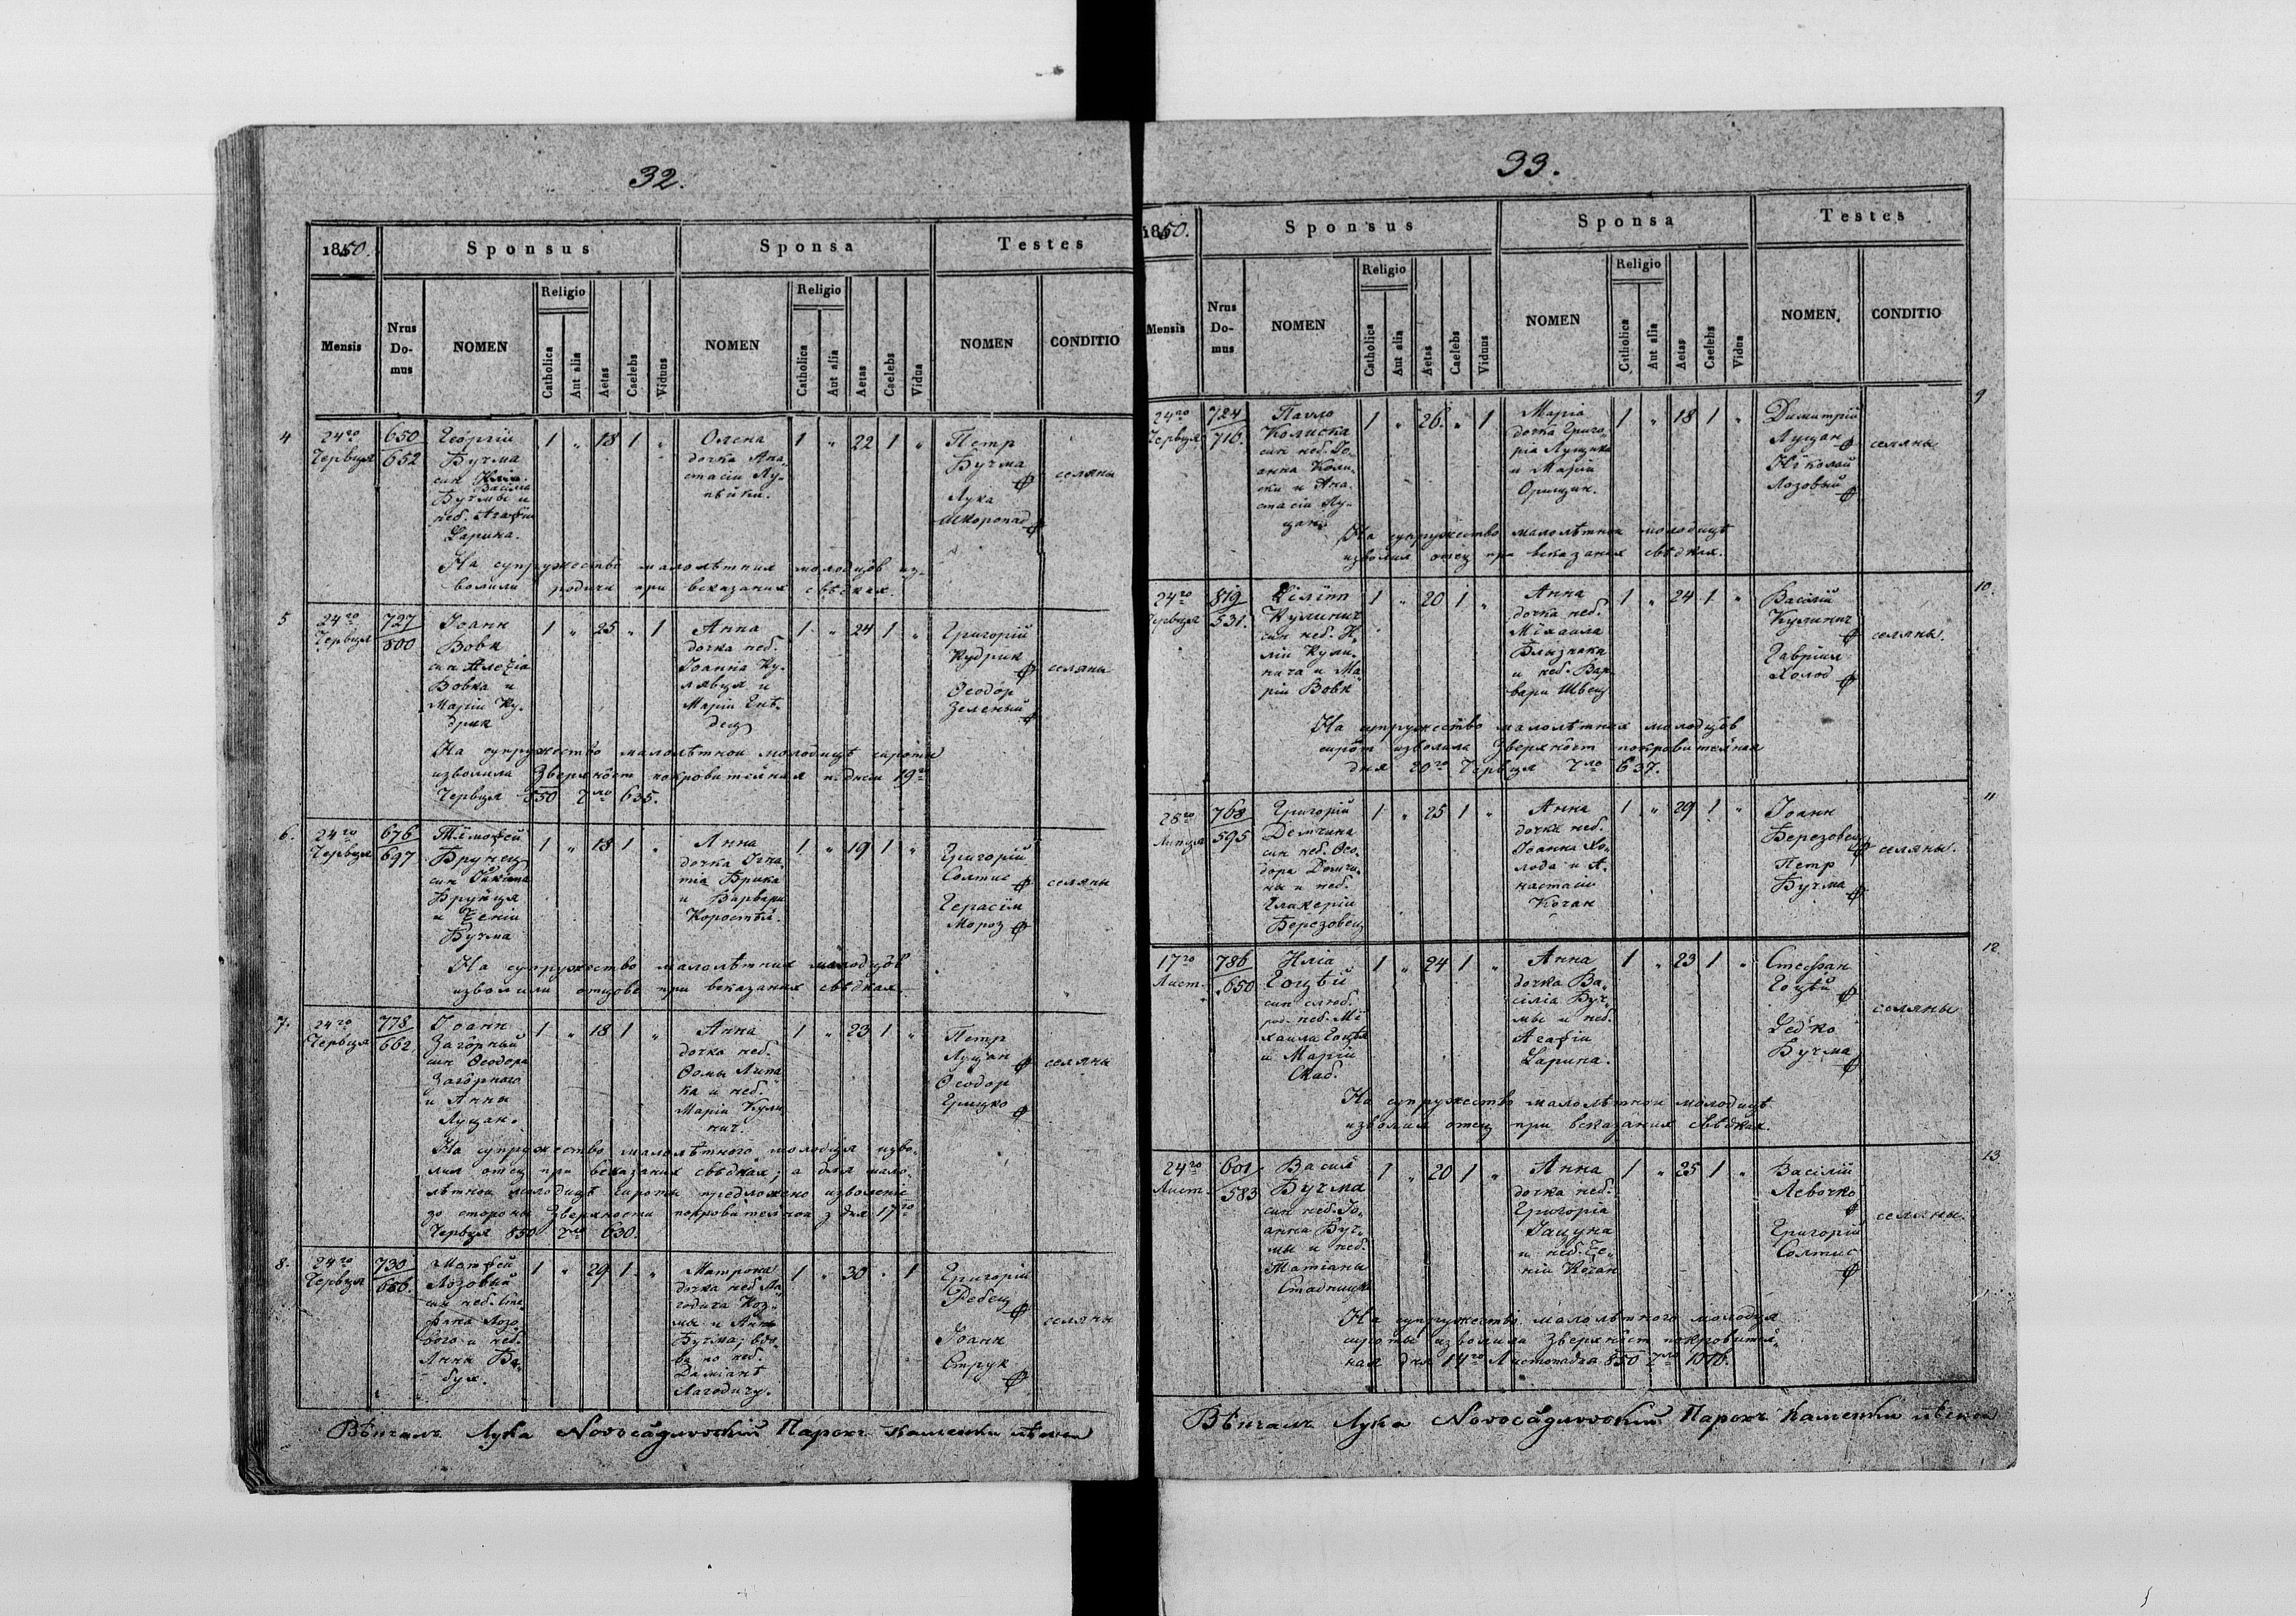 32.
1850.
Sponsus
Sponsa
Testes
Mensis
Nrus Domus
NOMEN
Religio
Catholica
Aut alia
Aetas
Caelebs
Viduus
NOMEN
Religio
Catholica
Aut alia
Aetas
Caelebs
Vidua
NOMEN
CONDITIO
4
24го Червця
650/652
Георгій
Бучма
син Илїи
Василіа
Бучмы и
неб. Агафіи
Ларина.
1 „ 18 1 „
Олена
дочка Ана-
стасіи Лу-
1 „ 22 1 „
Петр
Бучма
Лука
Шкоропад
селяны
На супружество малолѣтних молодцôв из-
волили родичи при всказаних свѣдках.
5
24го Червця
727/800
Іоанн
Вовк
син Алеѯіа
Вовка и
Маріи Ку-
дрик
1 „ 25 „ 1
Анна
дочка неб.
Іоанна Ку-
лявця и
Маріи Гнѣ-
дец
1 „ 24 1 „
Григорій
Кудрик
Ѳеодор
Зеленый
селяны
На супружество малолѣтнои молодицѣ сироты
изволила Зверхнôст покровителная п. днем 19го
Червця 850 чло 635.
6.
24го Червця
676/697
Тімофей
Брунец
син Іоакима
Брунця
и Ѯеніи
Бучма
1 „ 18 1 „
Анна
дочка Игна-
тіа Брика
и Варвары
Коростѣй.
1 „ 19 1 „
Григорій
Солтис
Герасім
Мороз
селяны
На супружество малолѣтних молодцôв
изволили отцове при всказаних свѣдках.
7.
24го Червця
778/662
Іоанн
Загôрный
син Ѳеодора
Загôрного
и Анны
Лущан.
1 „ 18 1 „
Анна
дочка неб.
Ѳомы Липа-
ка и неб.
Маріи Кули-
нич.
1 „ 23 1 „
Петр
Лущан
Ѳеодор
Грицко
селяны
На супружество малолѣтного молодця изво-
лил отец при всказаних свѣдках; а для мало-
лѣтнои молодицѣ сироты предложено изволеніе
зо стороны Зверхности покровителнои з дня 17го
Червця 850 чло 630.
8.
24го Червця
730/686.
Матфей
Лозовый
син неб. Сте-
фана Лозо-
вого и неб.
Анны Ба-
бух.
1 „ 29 1 „
Матрона
дочка неб. Ла-
годича Коз-
мы и Анны
Бучма; вдо-
ва по неб.
Даміанѣ
Лагодичу.
1 „ 30 „ 1
Григорій
Ребец
Іоанн
Струк
селяны
Вѣнчалъ Лука Новосѧдловскій Парохъ Каменки
33.
1850.
Sponsus
Sponsa
Testes
Mensis
Nrus Domus
NOMEN
Religio
Catholica
Aut alia
Aetas
Caelebs
Viduus
NOMEN
Religio
Catholica
Aut alia
Aetas
Caelebs
Vidua
NOMEN
CONDITIO
9
24го Червця
724/716.
Павло
Колиска
син неб. Іо-
анна Коли-
ски и Ана-
стасіи Лу-
щан.
1 „ 26. „ 1
Маріа
дочка Григо-
ріа Лущика
и Маріи
Орищин.
1 „ 18 1 „
Димитрій
Лущан
Николай
Лозовый
селяны
На супружество малолѣтнои молодицѣ
изволил отец при всказаних свѣдках.
10.
24го Червця
819/531.
Філіпп
Кулинич
син неб. И-
ліи Кули-
нича и Ма-
ріи Вовк
1 „ 20 1 „
Анна
дочка неб.
Міхаила
Близнака
и неб. Вар-
вары Швец
1 „ 24 1. „
Васілій
Кулинич
Гавріил
Холод
селяны.
На супружество малолѣтних молодцôв
сирôт изволила Зверхнôст покровителная
дня 20го Червця чло 637.
11
25го Липця
768/595
Григорій
Демчина
син неб. Ѳео-
дора Демчи-
ны и неб.
Гликеріи
Березовец
1 „ 25 1 „
Анна
дочка неб.
Іоанна Хо-
лода и А-
настасіи
Кочан
1 „ 29 1 „
Іоанн
Березовец
Петр
Бучма
селяны.
12
17го Лист.
786/650
Иліа
Гоцѣй
син слюб.
род. неб. Мі-
хаила Гоцѣя
и Маріи
Скаб.
1 „ 24 1 „
Анна
дочка Ва-
сіліа Буч-
мы и неб.
Агафіи
Ларина.
1 „ 23 1 „
Стефан
Гоцѣй
Федко
Бучма
селяны
На супружество малолѣтнои молодицѣ
изволил отец при всказаних свѣдках.
13
24го Лист.
601/583
Васил
Бучма
син неб. Іо-
анна Буч-
мы и неб.
Татіаны
Стадницка
1 „ 20 1 „
Анна
дочка неб.
Григоріа
Іацуна
и неб. Ѯе-
ніи Кочан
1 „ 25 1 „
Васілій
Левочко
Григорій
Солтис
селяны.
На супружество малолѣтного молодця
сироты изволила Зверхнôст покровител-
ная дня 14го Листопада 850 чло 1376.
Вѣнчалъ Лука Новосѧдловскій Парохъ Каменки